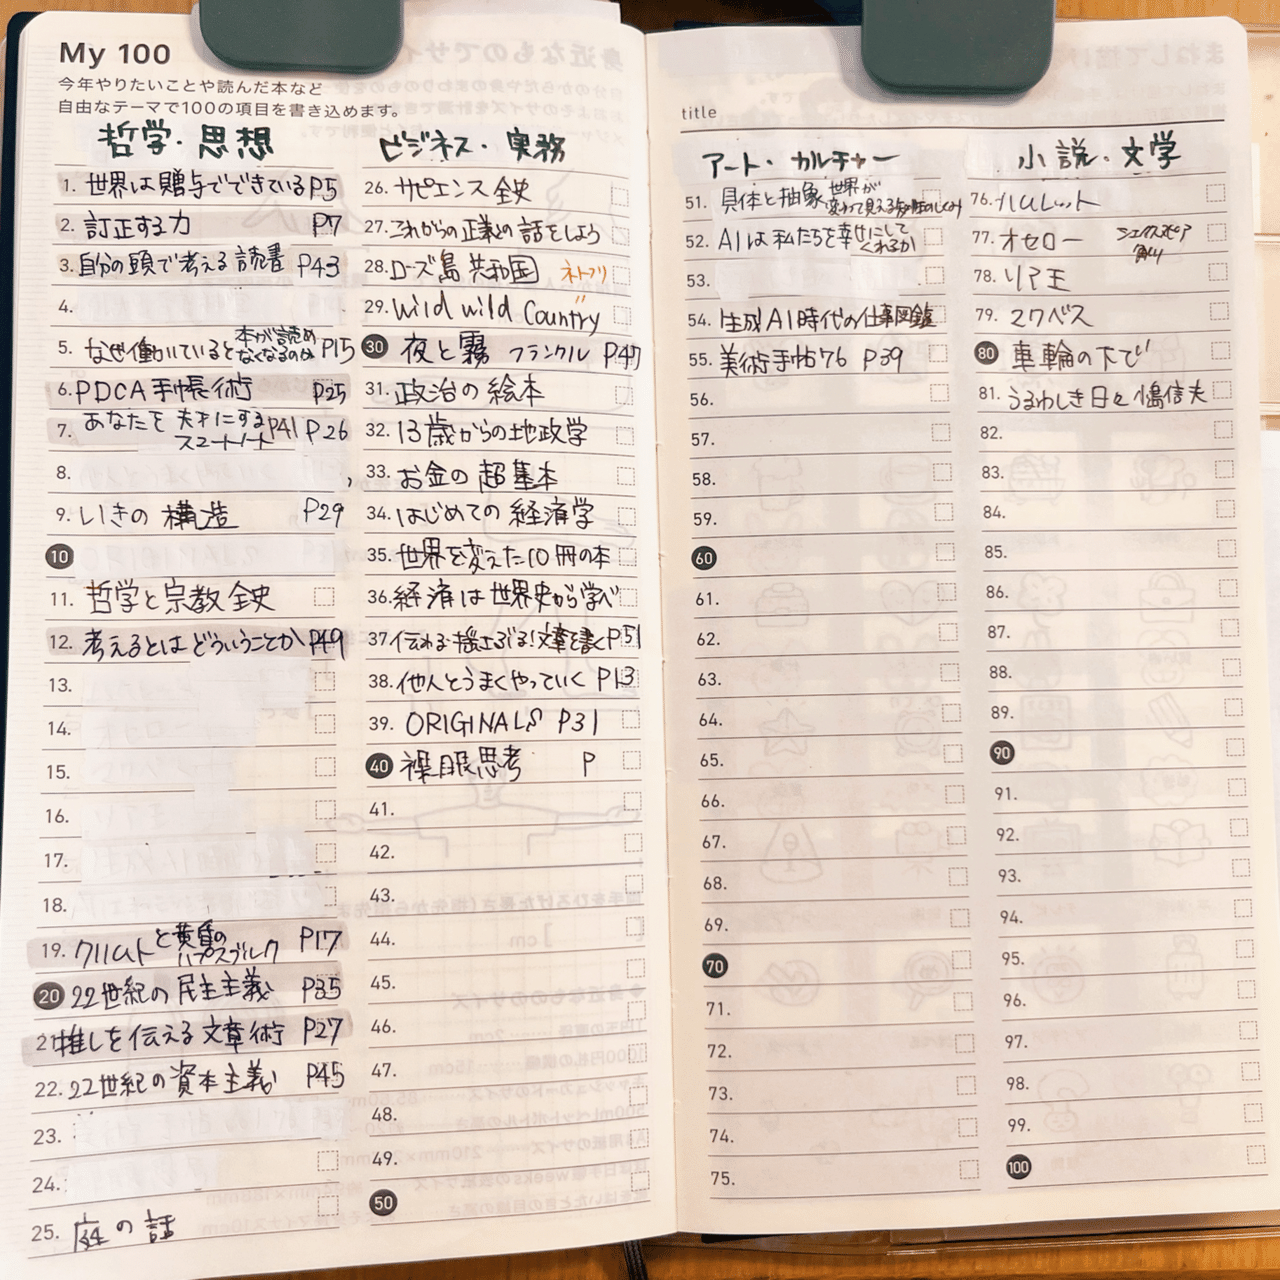 My 100
今年やりたいことや読んだ本など
自由なテーマで100の項目を書き込めます。
哲学・思想
1. 世界は贈与でできている P5
2. 訂正する力 P7
3. 自分の頭で考える読書 P43
4.
5. なぜ働いていると本が読めなくなるのか P15
6. PDCA手帳術 P25
7. あなたを天才にするスマートノート P41 P26
8.
9. いきの構造 P29
10
11. 哲学と宗教全史
12. 考えるとはどういうことか P49
13.
14.
15.
16.
17.
18.
19. クリムトと黄昏のハプスブルク P17
20 22世紀の民主主義 P35
21 推しを伝える文章術 P27
22. 22世紀の資本主義 P45
23.
24.
25. 庭の話
ビジネス・実務
26. サピエンス全史
27. これからの正義の話をしよう
28. ローズ島共和国 ネトフリ
29. Wild wild Country 〃
30 夜と霧 フランクル P47
31. 政治の絵本
32. 13歳からの地政学
33. お金の超基本
34. はじめての経済学
35. 世界を変えた10冊の本
36. 経済は世界史から学べ
37 伝わる・揺さぶる!文章を書く P51
38. 他人とうまくやっていく P13
39. ORIGINALS P31
40 裸眼思考 P
41.
42.
43.
44.
45.
46.
47.
48.
49.
50
title
アート・カルチャー
51. 具体と抽象 世界が変わって見える知性のしくみ
52. AIは私たちを幸せにしてくれるか
53.
54. 生成AI時代の仕事図鑑
55. 美術手帖76 P39
56.
57.
58.
59.
60
61.
62.
63.
64.
65.
66.
67.
68.
69.
70
71.
72.
73.
74.
75.
小説・文学
76. ハムレット
77. オセロー シェイクスピア
78. リア王
79. マクベス
80 車輪の下で
81. うるわしき日々 小島信夫
82.
83.
84.
85.
86.
87.
88.
89.
90
91.
92.
93.
94.
95.
96.
97.
98.
99.
100